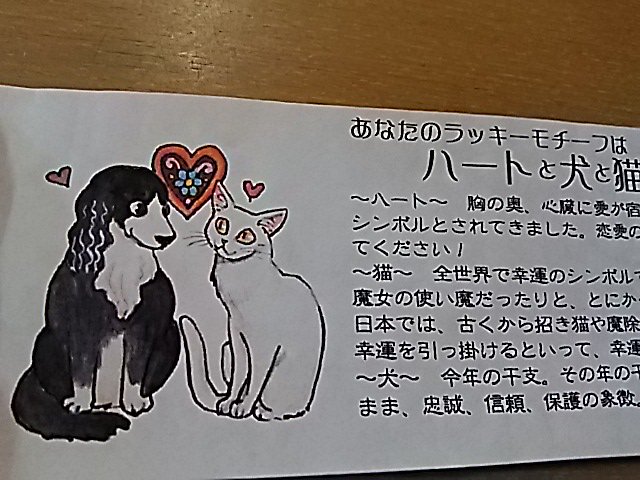 あなたのラッキーモチーフは
ハートと犬と猫
〜ハート〜 胸の奥、心臓に愛が宿
シンボルとされてきました。恋愛の
てください!
〜猫〜 全世界で幸運のシンボルで
魔女の使い魔だったりと、とにか
日本では、古くから招き猫や魔除
幸運を引っ掛けるといって、幸運
〜犬〜 今年の干支。その年の干
まま、忠誠、信頼、保護の象徴。